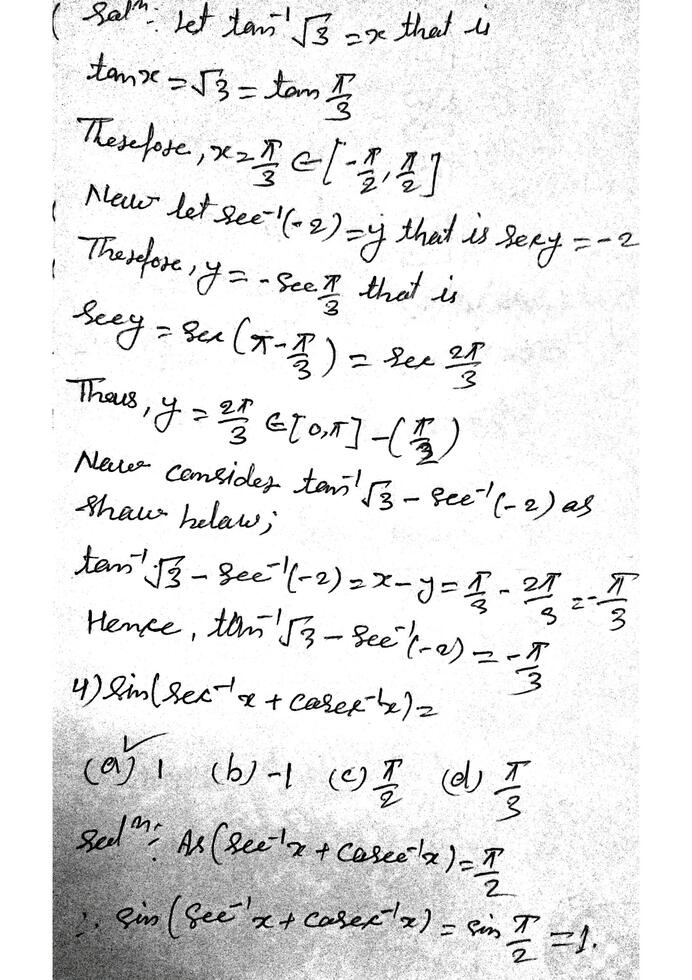 ( Solⁿ: Let tan⁻¹√3 = x that is
tanx = √3 = tan π/3
Therefore, x = π/3 ∈ [-π/2, π/2]
Now let sec⁻¹(-2) = y that is secy = -2
Therefore, y = -sec π/3 that is
secy = sec (π - π/3) = sec 2π/3
Thus, y = 2π/3 ∈ [0,π] - (π/2)
Now consider tan⁻¹√3 - sec⁻¹(-2) as
shaw belaw;
tan⁻¹√3 - sec⁻¹(-2) = x - y = π/3 - 2π/3 = -π/3
Hence, tan⁻¹√3 - sec⁻¹(-2) = -π/3
4) sin(sec⁻¹x + cosec⁻¹x) =
(a)✓ 1 (b) -1 (c) π/2 (d) π/3
Solⁿ: As (sec⁻¹x + cosec⁻¹x) = π/2
∴ sin (sec⁻¹x + cosec⁻¹x) = sin π/2 = 1.